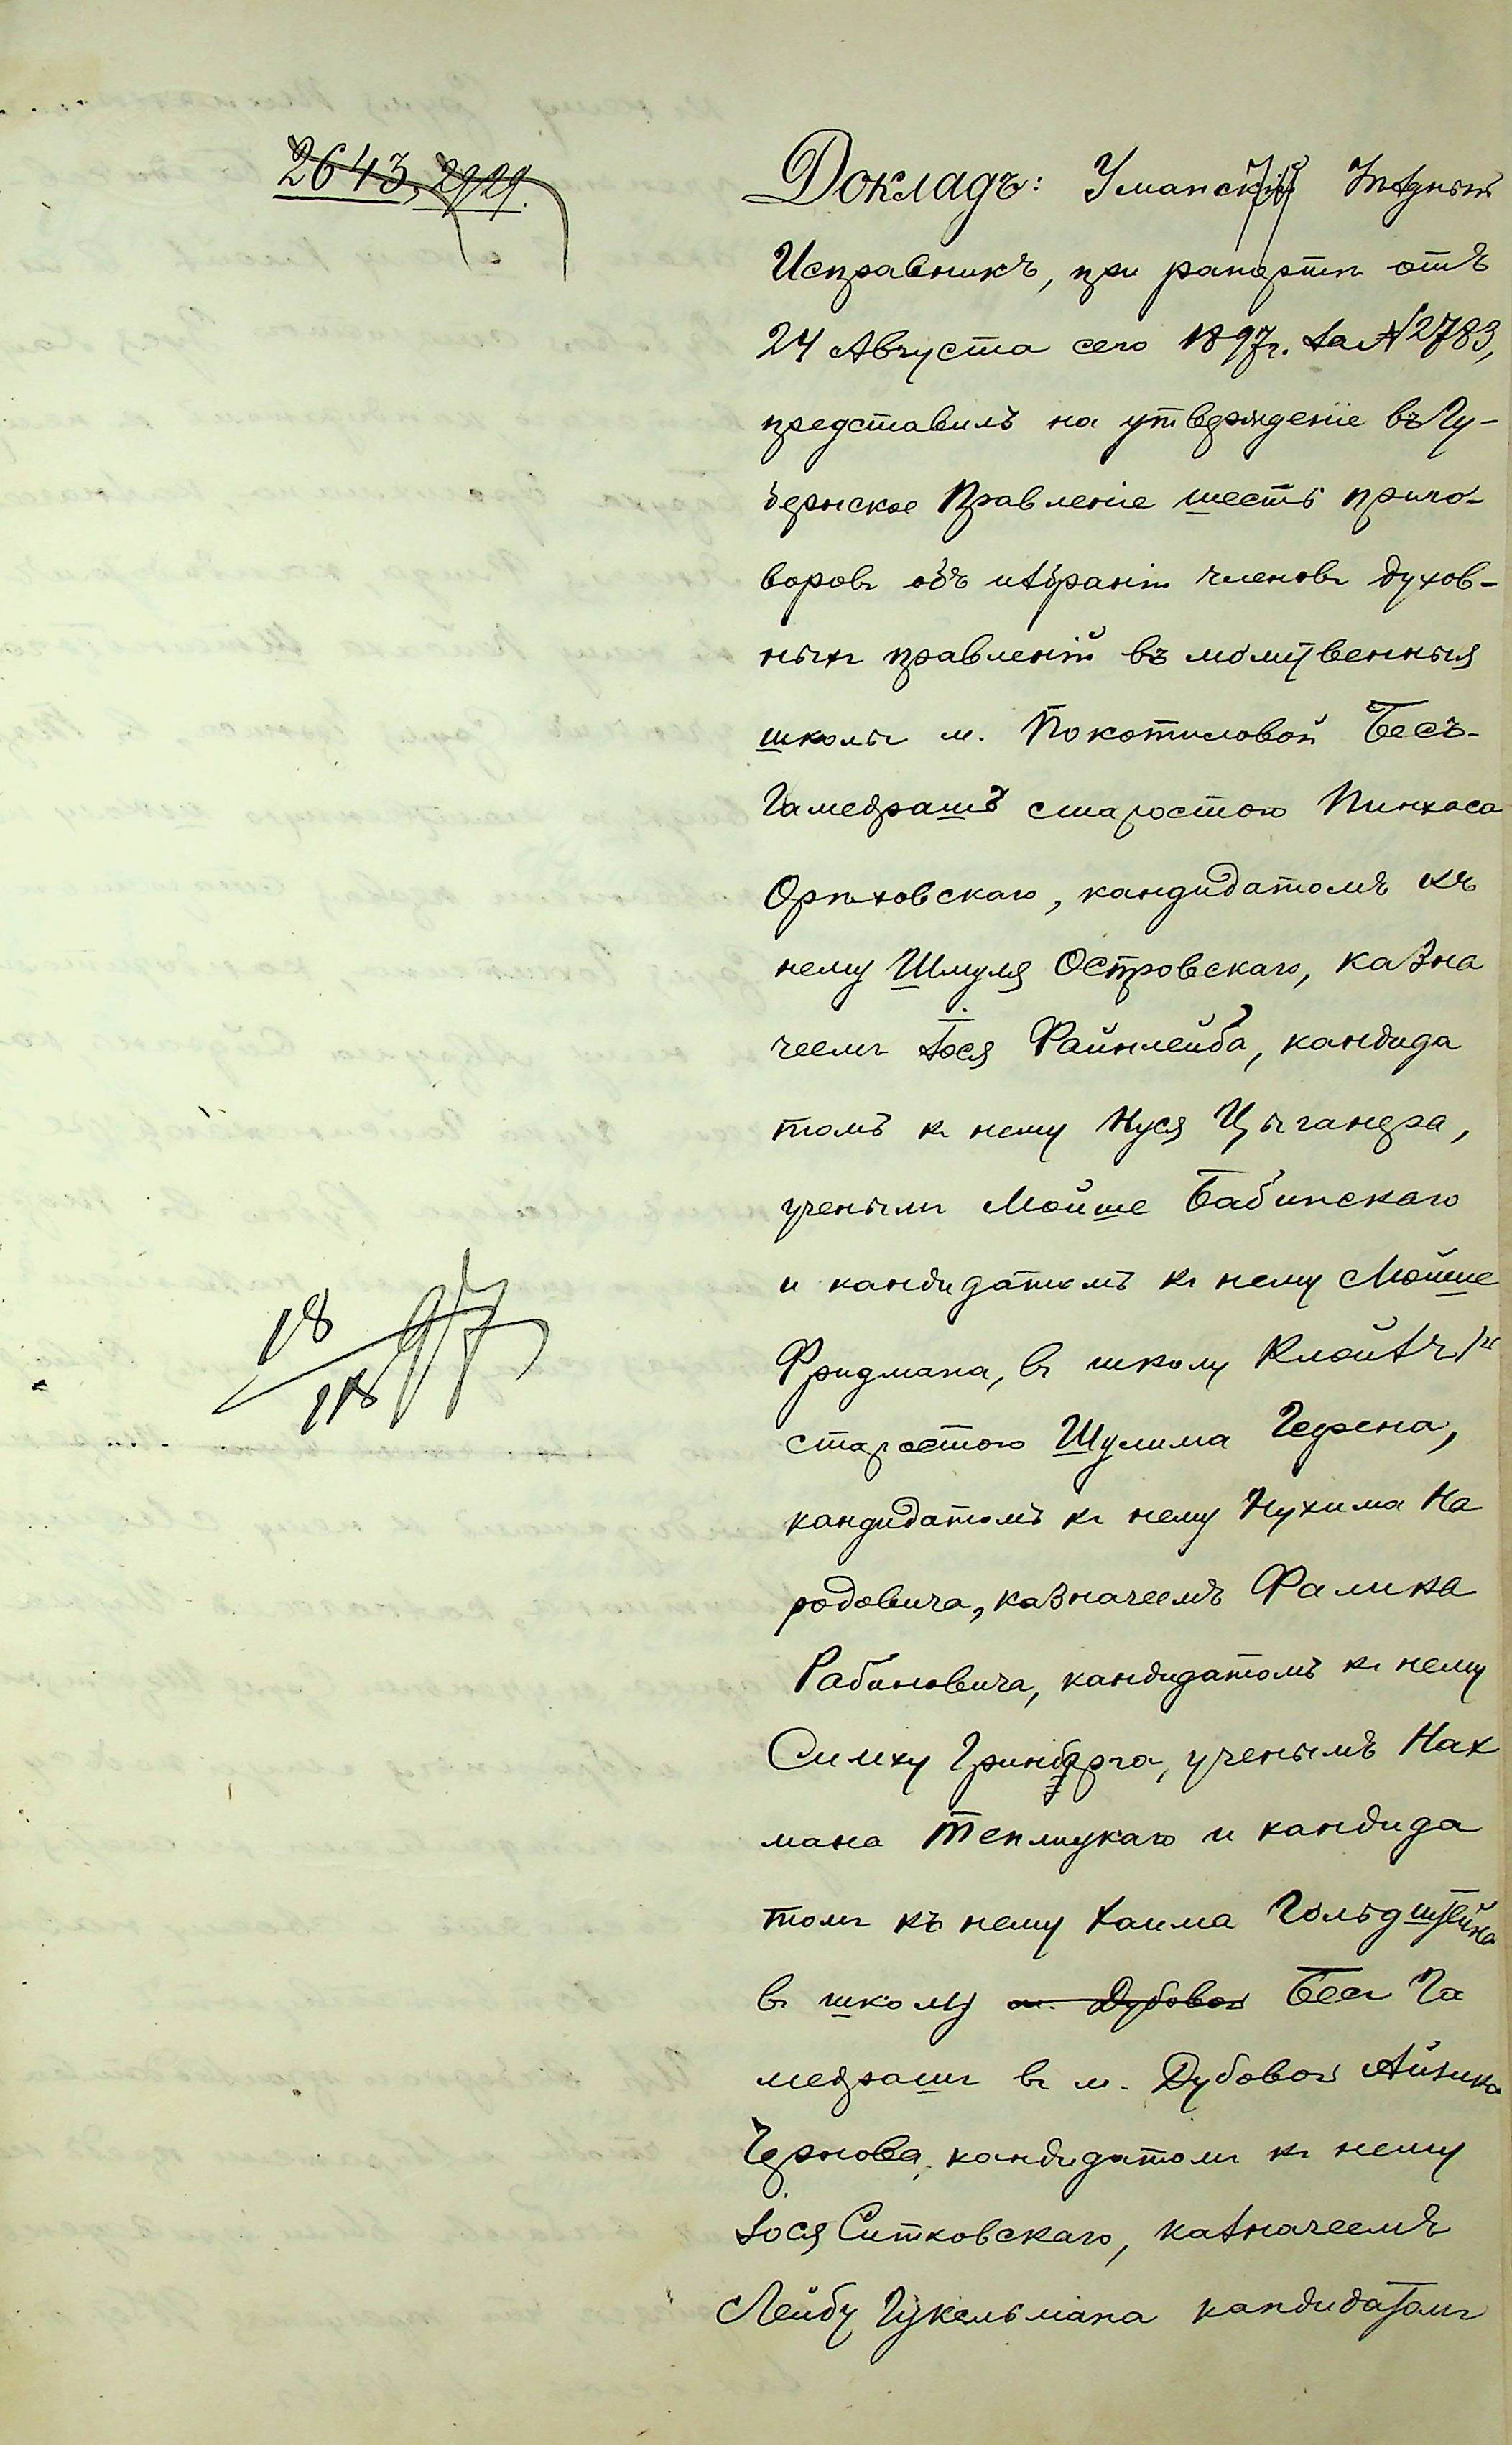 2643, 2929.
Докладъ: Уманскій Уѣздный
Исправникъ, при рапортѣ отъ
24 Августа сего 1897 г. за № 2783,
представилъ на утвержденіе въ Гу-
бернское Правленіе шесть приго-
воровъ объ избраніи членовъ духов-
ныхъ правленій въ молитвенныя
школы м. Покотиловой Бесъ-
Гамедрашъ старостою Пинхаса
Орѣховскаго, кандидатомъ къ
нему Шмуля Островскаго, казна
чеемъ Іося Файнлейба, кандида
томъ къ нему Нуся Цыгандра,
ученымъ Мойше Бабинскаго
и кандидатомъ къ нему Мойше
Фридмана, въ школу Клойзъ
старостою Шулима Герена,
кандидатомъ къ нему Нухима На
родовича, казначеемъ Фалика
Рабиновича, кандидатомъ къ нему
Симху Гринберга, ученымъ Нах
мана Теплицкаго и кандида
томъ къ нему Хаима Гольдштейна
въ школу м. Дубовой Бесъ Га
медрашъ въ м. Дубовой Айзика
Чернова, кандидатомъ къ нему
Іося Ситковскаго, казначеемъ
Лейбу Гукельмана кандидатомъ
18/IX 97